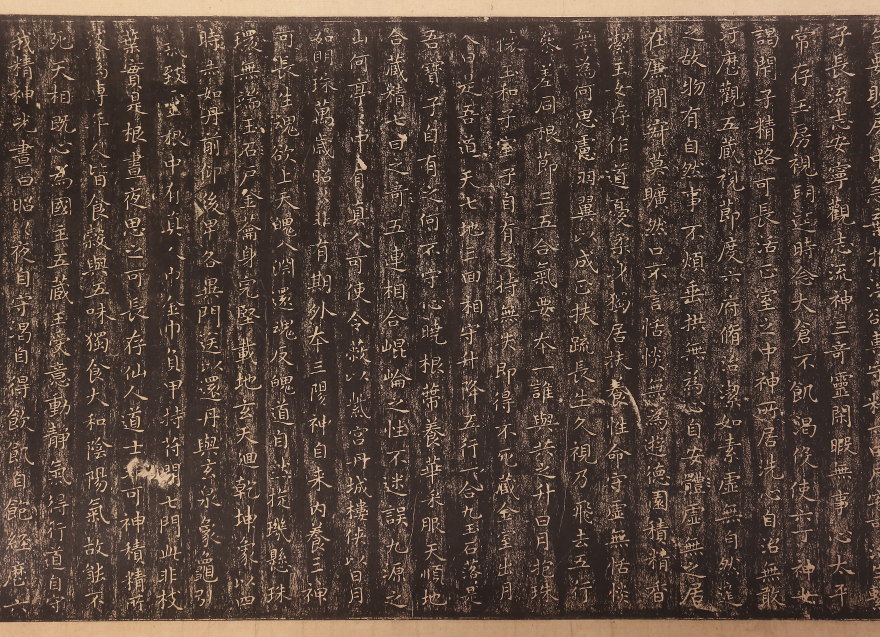 子長流志安寧觀志流神三奇靈閒暇無事心太平
常存玉房視明達時念大倉不飢渴役使六丁神女
謁閉子精路可長活正室之中神所居洗心自治無敢
汙歷觀五藏視節度六府脩治潔如素虛無自然道
之故物有自然事不煩垂拱無為心自安體虛無之居
在廉閒寂莫曠然口不言恬惔無為遊德園積精香
潔玉女存作道憂柔身獨居扶養性命守虛無恬惔
無為何思慮羽翼以成正扶疏長生久視乃飛去五行
參差同根節三五合氣要本一誰與共之升日月抱珠
懷玉和子室子自有之持無失即得不死藏金室出月
入日是吾道天七地三回相守升降五行一合九玉石落是
吾寶子自有之何不守心曉根蔕養華采服天順地
合藏精七日之奇五連相合崐崘之性不迷誤九源之
山何亭中有真人可使令蔽以紫宮丹城樓俠以日月
如明珠萬歲昭非有期外本三陽神自來內養三神
可長生魂欲上天魄入淵還魂反魄道自然旋璣懸珠
環無端玉石戶金籥身完堅載地玄天迴乾坤象以四
時赤如丹前仰後卑各異門送以還丹與玄泉象龜引
氣致靈根中有真人巾金巾負甲持符開七門此非枝
葉實是根晝夜思之可長存仙人道士非可神積精所
致為專年人皆食穀與五味獨食大和陰陽氣故能不
死天相既心為國主五藏王受意動靜氣得行道自守
我精神光晝日昭夜自守渴自得飲飢自飽經歷六